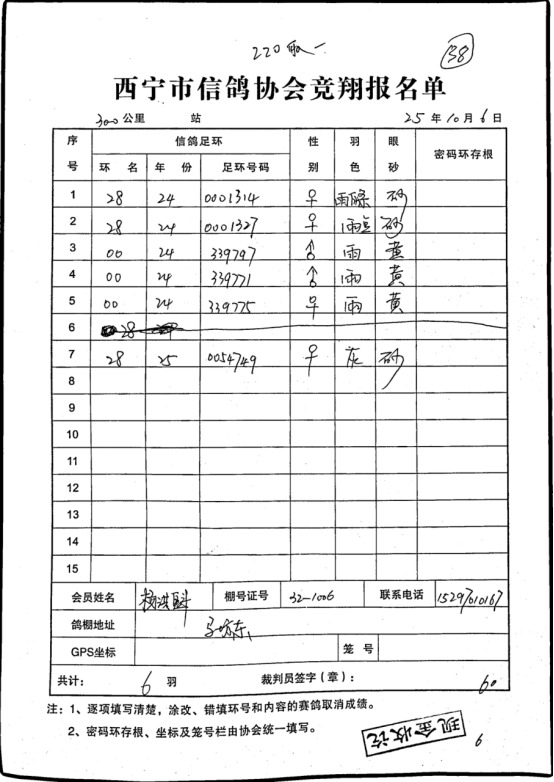 220取一
38
西宁市信鸽协会竞翔报名单
300公里 站 25年10月6日
序号 信鸽足环 性别 羽色 眼砂 密码环存根
环名 年份 足环号码
1 28 24 0001314 ♀ 雨 砂
2 28 24 0001327 ♀ 雨 砂
3 00 24 339797 ♂ 雨 黄
4 00 24 339771 ♂ 雨 黄
5 00 24 339775 ♀ 雨 黄
6 28
7 28 25 0054749 ♀ 灰 砂
8
9
10
11
12
13
14
15
会员姓名 棚号证号 32-1006 联系电话 15297010167
鸽棚地址 马坊东
GPS坐标 笼号
共计: 6 羽 裁判员签字(章): 60
注:1、逐项填写清楚,涂改、错填环号和内容的赛鸽取消成绩。
2、密码环存根、坐标及笼号栏由协会统一填写。
现金收讫
6